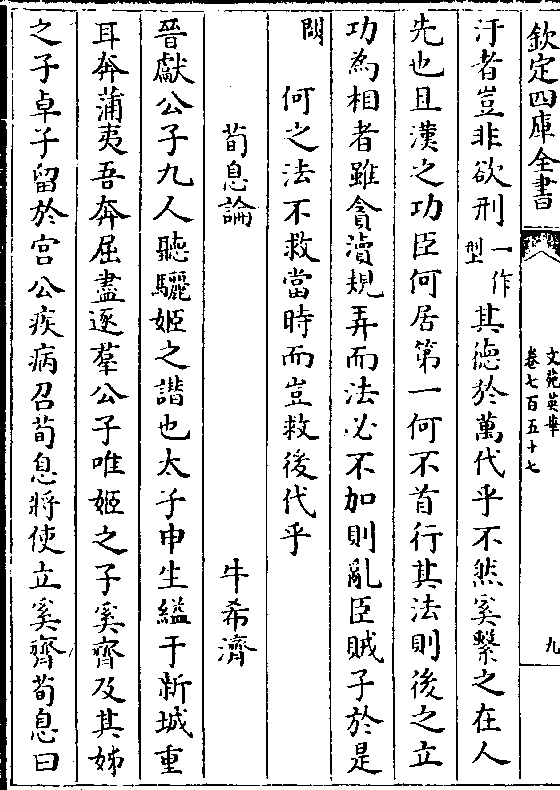 欽定四庫全書
文苑英華
卷七百五十七
九
汙者豈非欲刑一作型其德於萬代乎不然奚繫之在人
先也且漢之功臣何居第一何不首行其法則後之立
功為相者雖貪瀆規弄而法必不加則亂臣賊子於是
閧何之法不救當時而豈救後代乎
荀息論
牛希濟
晉獻公子九人聽驪姬之譖也太子申生縊于新城重
耳奔蒲夷吾奔屈盡逐羣公子唯姬之子奚齊及其姊
之子卓子留於宫公疾病召荀息將使立奚齊荀息曰